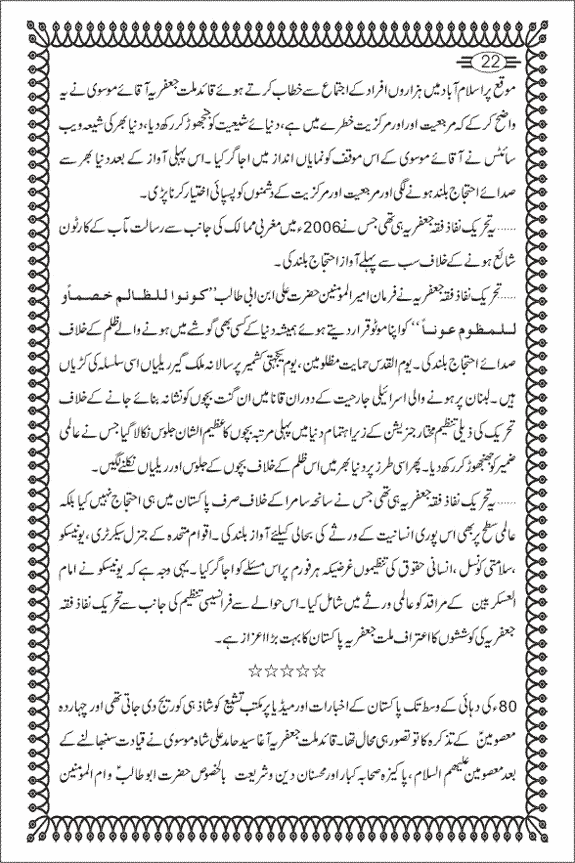 22
موقع پر اسلام آباد میں ہزاروں افراد کے اجتماع سے خطاب کرتے ہوئے قائد ملت جعفریہ آقائے موسوی نے یہ
واضح کر کے کہ مرجعیت اور اور مرکزیت خطرے میں ہے، دنیائے شیعیت کو جنجھوڑ کر رکھ دیا، دنیا بھر کی شیعہ ویب
سائٹس نے آقائے موسوی کے اس موقف کو نمایاں انداز میں اجاگر کیا۔ اس پہلی آواز کے بعد دنیا بھر سے
صدائے احتجاج بلند ہونے لگی اور مرجعیت اور مرکزیت کے دشمنوں کو پسپائی اختیار کرنا پڑی۔
......یہ تحریک نفاذ فقہ جعفریہ ہی تھی جس نے 2006ء میں مغربی ممالک کی جانب سے رسالت مآب کے کارٹون
شائع ہونے کے خلاف سب سے پہلے آواز احتجاج بلند کی۔
......تحریک نفاذ فقہ جعفریہ نے فرمان امیر المومنین حضرت علی ابن ابی طالب ’’کونوا للظالم خصماً و
للمظوم عوناً‘‘ کو اپنا موٹو قرار دیتے ہوئے ہمیشہ دنیا کے کسی بھی گوشے میں ہونے والے ظلم کے خلاف
صدائے احتجاج بلند کی۔ یوم القدس حمایت مظلومین، یوم یکجہتی کشمیر پر سالانہ ملک گیر ریلیاں اسی سلسلہ کی کڑیاں
ہیں۔ لبنان پر ہونے والی اسرائیلی جارحیت کے دوران قانا میں ان گنت بچوں کو نشانہ بنائے جانے کے خلاف
تحریک کی ذیلی تنظیم مختار جنریشن کے زیر اہتمام دنیا میں پہلی مرتبہ بچوں کا عظیم الشان جلوس نکالا گیا جس نے عالمی
ضمیر کو جھنجھوڑ کر رکھ دیا۔ پھر اسی طرز پر دنیا بھر میں اس ظلم کے خلاف بچوں کے جلوس اور ریلیاں نکلنے لگیں۔
......یہ تحریک نفاذ فقہ جعفریہ ہی تھی جس نے سانحہ سامرا کے خلاف صرف پاکستان میں ہی احتجاج نہیں کیا بلکہ
عالمی سطح پر بھی اس پوری انسانیت کے ورثے کی بحالی کیلئے آواز بلند کی۔ اقوام متحدہ کے جنرل سیکرٹری، یونیسکو
،سلامتی کونسل، انسانی حقوق کی تنظیموں غرضیکہ ہر فورم پر اس مسئلے کو اجاگر کیا۔ یہی وجہ ہے کہ یونیسکو نے امام
العسکریین کے مراقد کو عالمی ورثے میں شامل کیا۔ اس حوالے سے فرانسیسی تنظیم کی جانب سے تحریک نفاذ فقہ
جعفریہ کی کوششوں کا اعتراف ملت جعفریہ پاکستان کا بہت بڑا اعزاز ہے۔
☆☆☆☆☆
80ء کی دہائی کے وسط تک پاکستان کے اخبارات اور میڈیا پر مکتب تشیع کو شاذ ہی کوریج دی جاتی تھی اور چہاردہ
معصومینؑ کے تذکرہ کا تو تصور ہی محال تھا۔ قائد ملت جعفریہ آغا سید حامد علی شاہ موسوی نے قیادت سنبھالنے کے
بعد معصومین علیھم السلام، پاکیزہ صحابہ کبار اور محسنان دین و شریعت بالخصوص حضرت ابو طالبؑ و ام المومنین